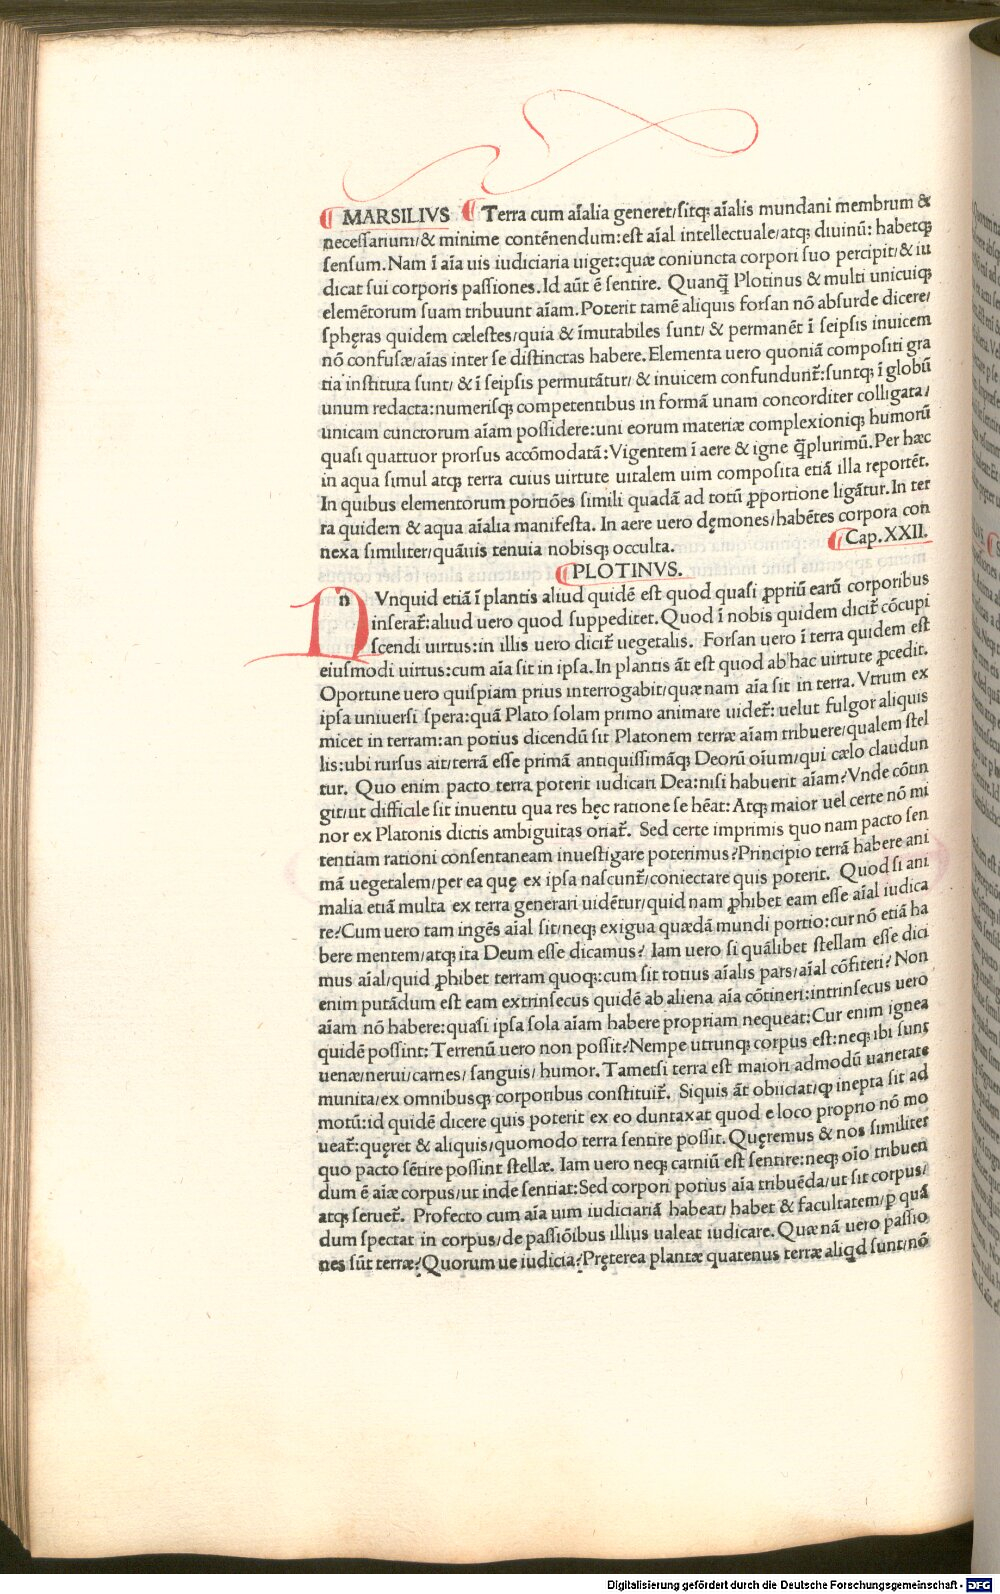 MARSILIVS Terra cum aĩalia generet/sitq; aĩalis mundani membrum &
necessarium/& minime contẽnendum:est aĩal intellectuale/atq; diuinũ: habetq;
sensum. Nam ĩ aĩa uis iudiciaria uiget:quæ coniuncta corpori suo percipit/& iu
dicat sui corporis passiones. Id aũt ẽ sentire. Quanq̃ Plotinus & multi unicuiq;
elemẽtorum suam tribuunt aĩam. Poterit tamẽ aliquis forsan nõ absurde dicere/
sphęras quidem cælestes/quia & ĩmutabiles sunt/ & permanẽt ĩ seipsis inuicem
nõ confusæ/aĩas inter se distinctas habere. Elementa uero quoniã compositi gra
tia instituta sunt/ & ĩ seipsis permutãtur/ & inuicem confundunt᷑:suntq; ĩ globũ
unum redacta:numerisq; competentibus in formã unam concorditer colligata/
unicam cunctorum aĩam possidere:uni eorum materiæ complexioniq; humorũ
quasi quattuor prorsus accõmodatã: Vigentem ĩ aere & igne q̃plurimũ. Per hæc
in aqua simul atq; terra cuius uirtute uitalem uim composita etiã illa reportẽt.
In quibus elementorum portiões simili quadã ad totũ ꝓportione ligãtur. In ter
ra quidem & aqua aĩalia manifesta. In aere uero dęmones/habẽtes corpora con
nexa similiter/quãuis tenuia nobisq; occulta. Cap. XXII.
PLOTINVS.
n Vnquid etiã ĩ plantis aliud quidẽ est quod quasi ꝓpriũ earũ corporibus
inserat᷑:aliud uero quod suppeditet. Quod ĩ nobis quidem dicit᷑ cõcupi
scendi uirtus:in illis uero dicit᷑ uegetalis. Forsan uero ĩ terra quidem est
eiusmodi uirtus:cum aĩa sit in ipsa. In plantis ãt est quod ab hac uirtute ꝓcedit.
Oportune uero quispiam prius interrogabit/quæ nam aĩa sit in terra. Vtrum ex
ipsa uniuersi spera:quã Plato solam primo animare uidet᷑: uelut fulgor aliquis
micet in terram:an potius dicendũ sit Platonem terræ aĩam tribuere/qualem stel
lis:ubi rursus ait/terrã esse primã antiquissimãq; Deorũ oĩum/qui cælo claudun
tur. Quo enim pacto terra poterit iudicari Dea:nisi habuerit aĩam? Vnde cõtin
git/ut difficile sit inuentu qua res hęc ratione se hẽat: Atq; maior uel certe nõ mi
nor ex Platonis dictis ambiguitas oriat᷑. Sed certe imprimis quo nam pacto sen
tentiam rationi consentaneam inuestigare poterimus? Principio terrã habere ani
mã uegetalem/per ea quę ex ipsa nascunt᷑/coniectare quis poterit. Quod si ani
malia etiã multa ex terra generari uidẽtur/quid nam ꝓhibet eam esse aĩal iudica
re? Cum uero tam ingẽs aĩal sit/neq; exigua quædã mundi portio:cur nõ etiã ha
bere mentem/atq; ita Deum esse dicamus? Iam uero si quãlibet stellam esse dici
mus aĩal/quid ꝓhibet terram quoq;:cum sit totius aĩalis pars/aĩal cõfiteri? Non
enim putãdum est eam extrinsecus quidẽ ab aliena aĩa cõtineri:intrinsecus uero
aĩam nõ habere:quasi ipsa sola aĩam habere propriam nequeat: Cur enim ignea
quidẽ possint: Terrenũ uero non possit? Nempe utrunq; corpus est:neq; ibi sunt
uenæ/nerui/carnes/ sanguis/ humor. Tametsi terra est maiori admodũ uarietate
munita/ex omnibusq; corporibus constituit᷑. Siquis ãt obiiciat/ꝙ inepta sit ad
motũ:id quidẽ dicere quis poterit ex eo duntaxat quod e loco proprio nõ mo
ueat᷑:quęret & aliquis/quomodo terra sentire possit. Quęremus & nos similiter
quo pacto sẽtire possint stellæ. Iam uero neq; carniũ est sentire:neq; oĩo tribuen
dum ẽ aĩæ corpus/ut inde sentiat:Sed corpori potius aĩa tribuẽda/ut sit corpus/
atq; seruet᷑. Profecto cum aĩa uim iudiciariã habeat/ habet & facultatem/ꝑ quã
dum spectat in corpus/de passiõibus illius ualeat iudicare. Quæ nã uero passio
nes sũt terræ? Quorum ue iudicia? Pręterea plantæ quatenus terræ aliqd sunt/nõ
Digitalisierung gefördert durch die Deutsche Forschungsgemeinschaft - DFG